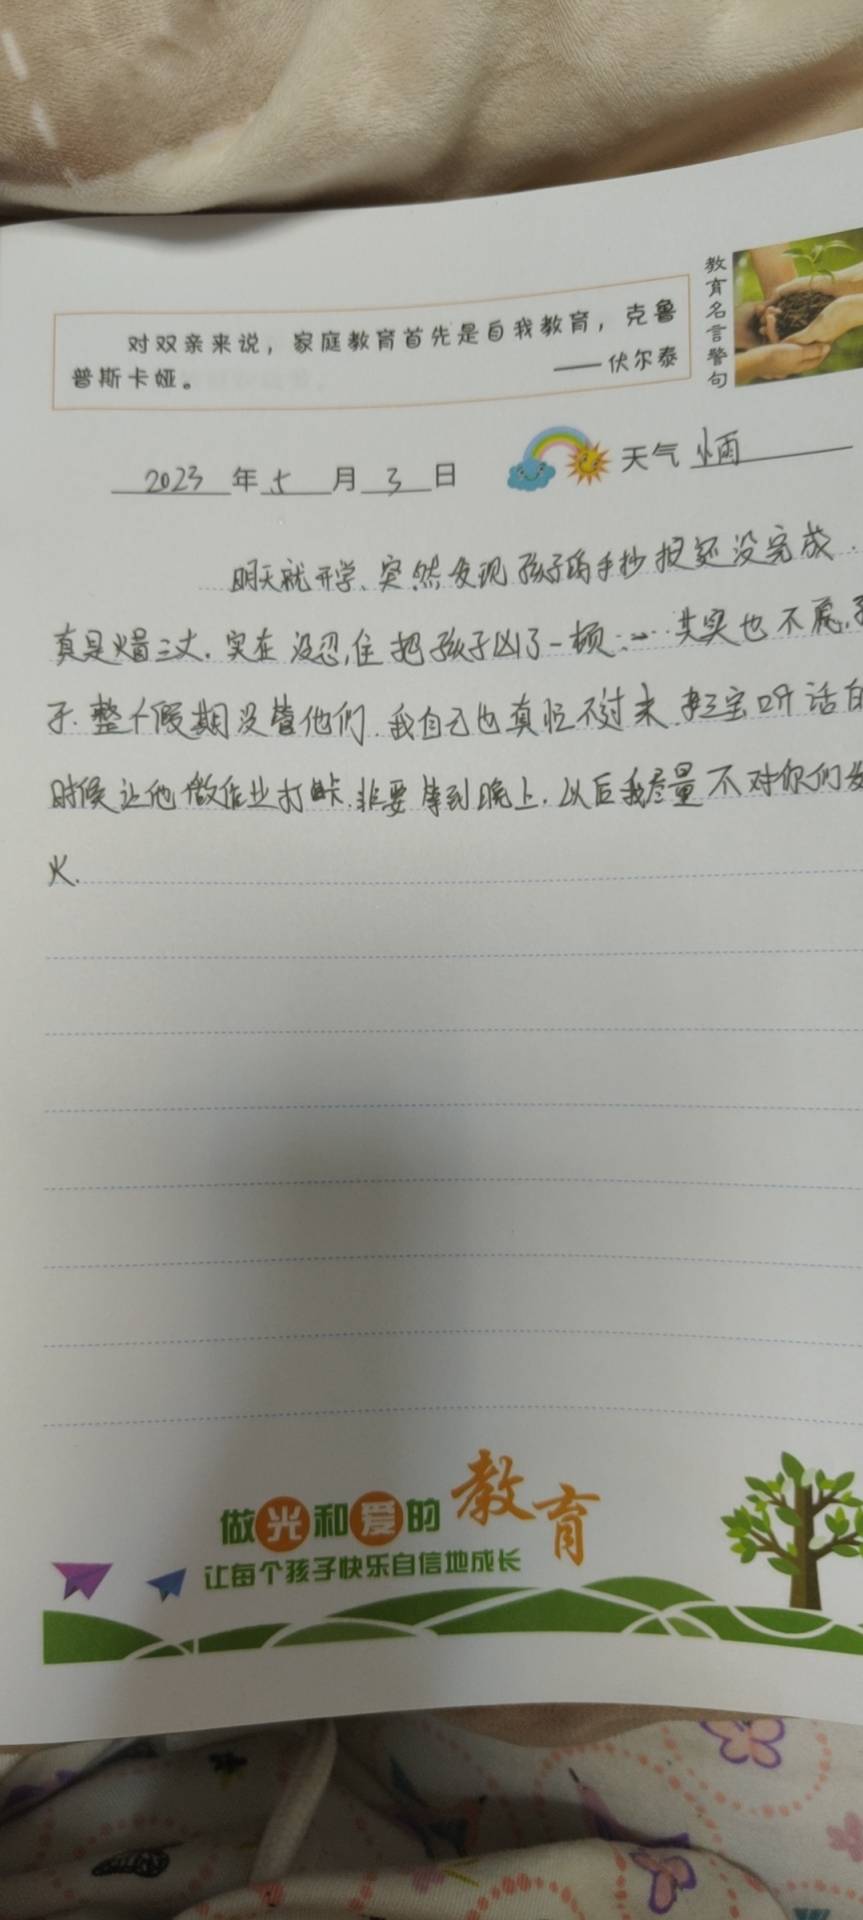 对双亲来说，家庭教育首先是自我教育，克鲁
普斯卡娅。
——伏尔泰
教育名言警句
2023年5月3日
天气 小雨
明天就开学、突然发现孩子的手抄报还没完成.
真是火冒三丈.实在没忍住把孩子凶了一顿……其实也不怨孩
子.整个假期没管他们.我自己也真忙不过来.趁宝听话的
时候让他做作业打岔.非要等到晚上.以后我尽量不对你们发
火.
做光和爱的教育
让每个孩子快乐自信地成长